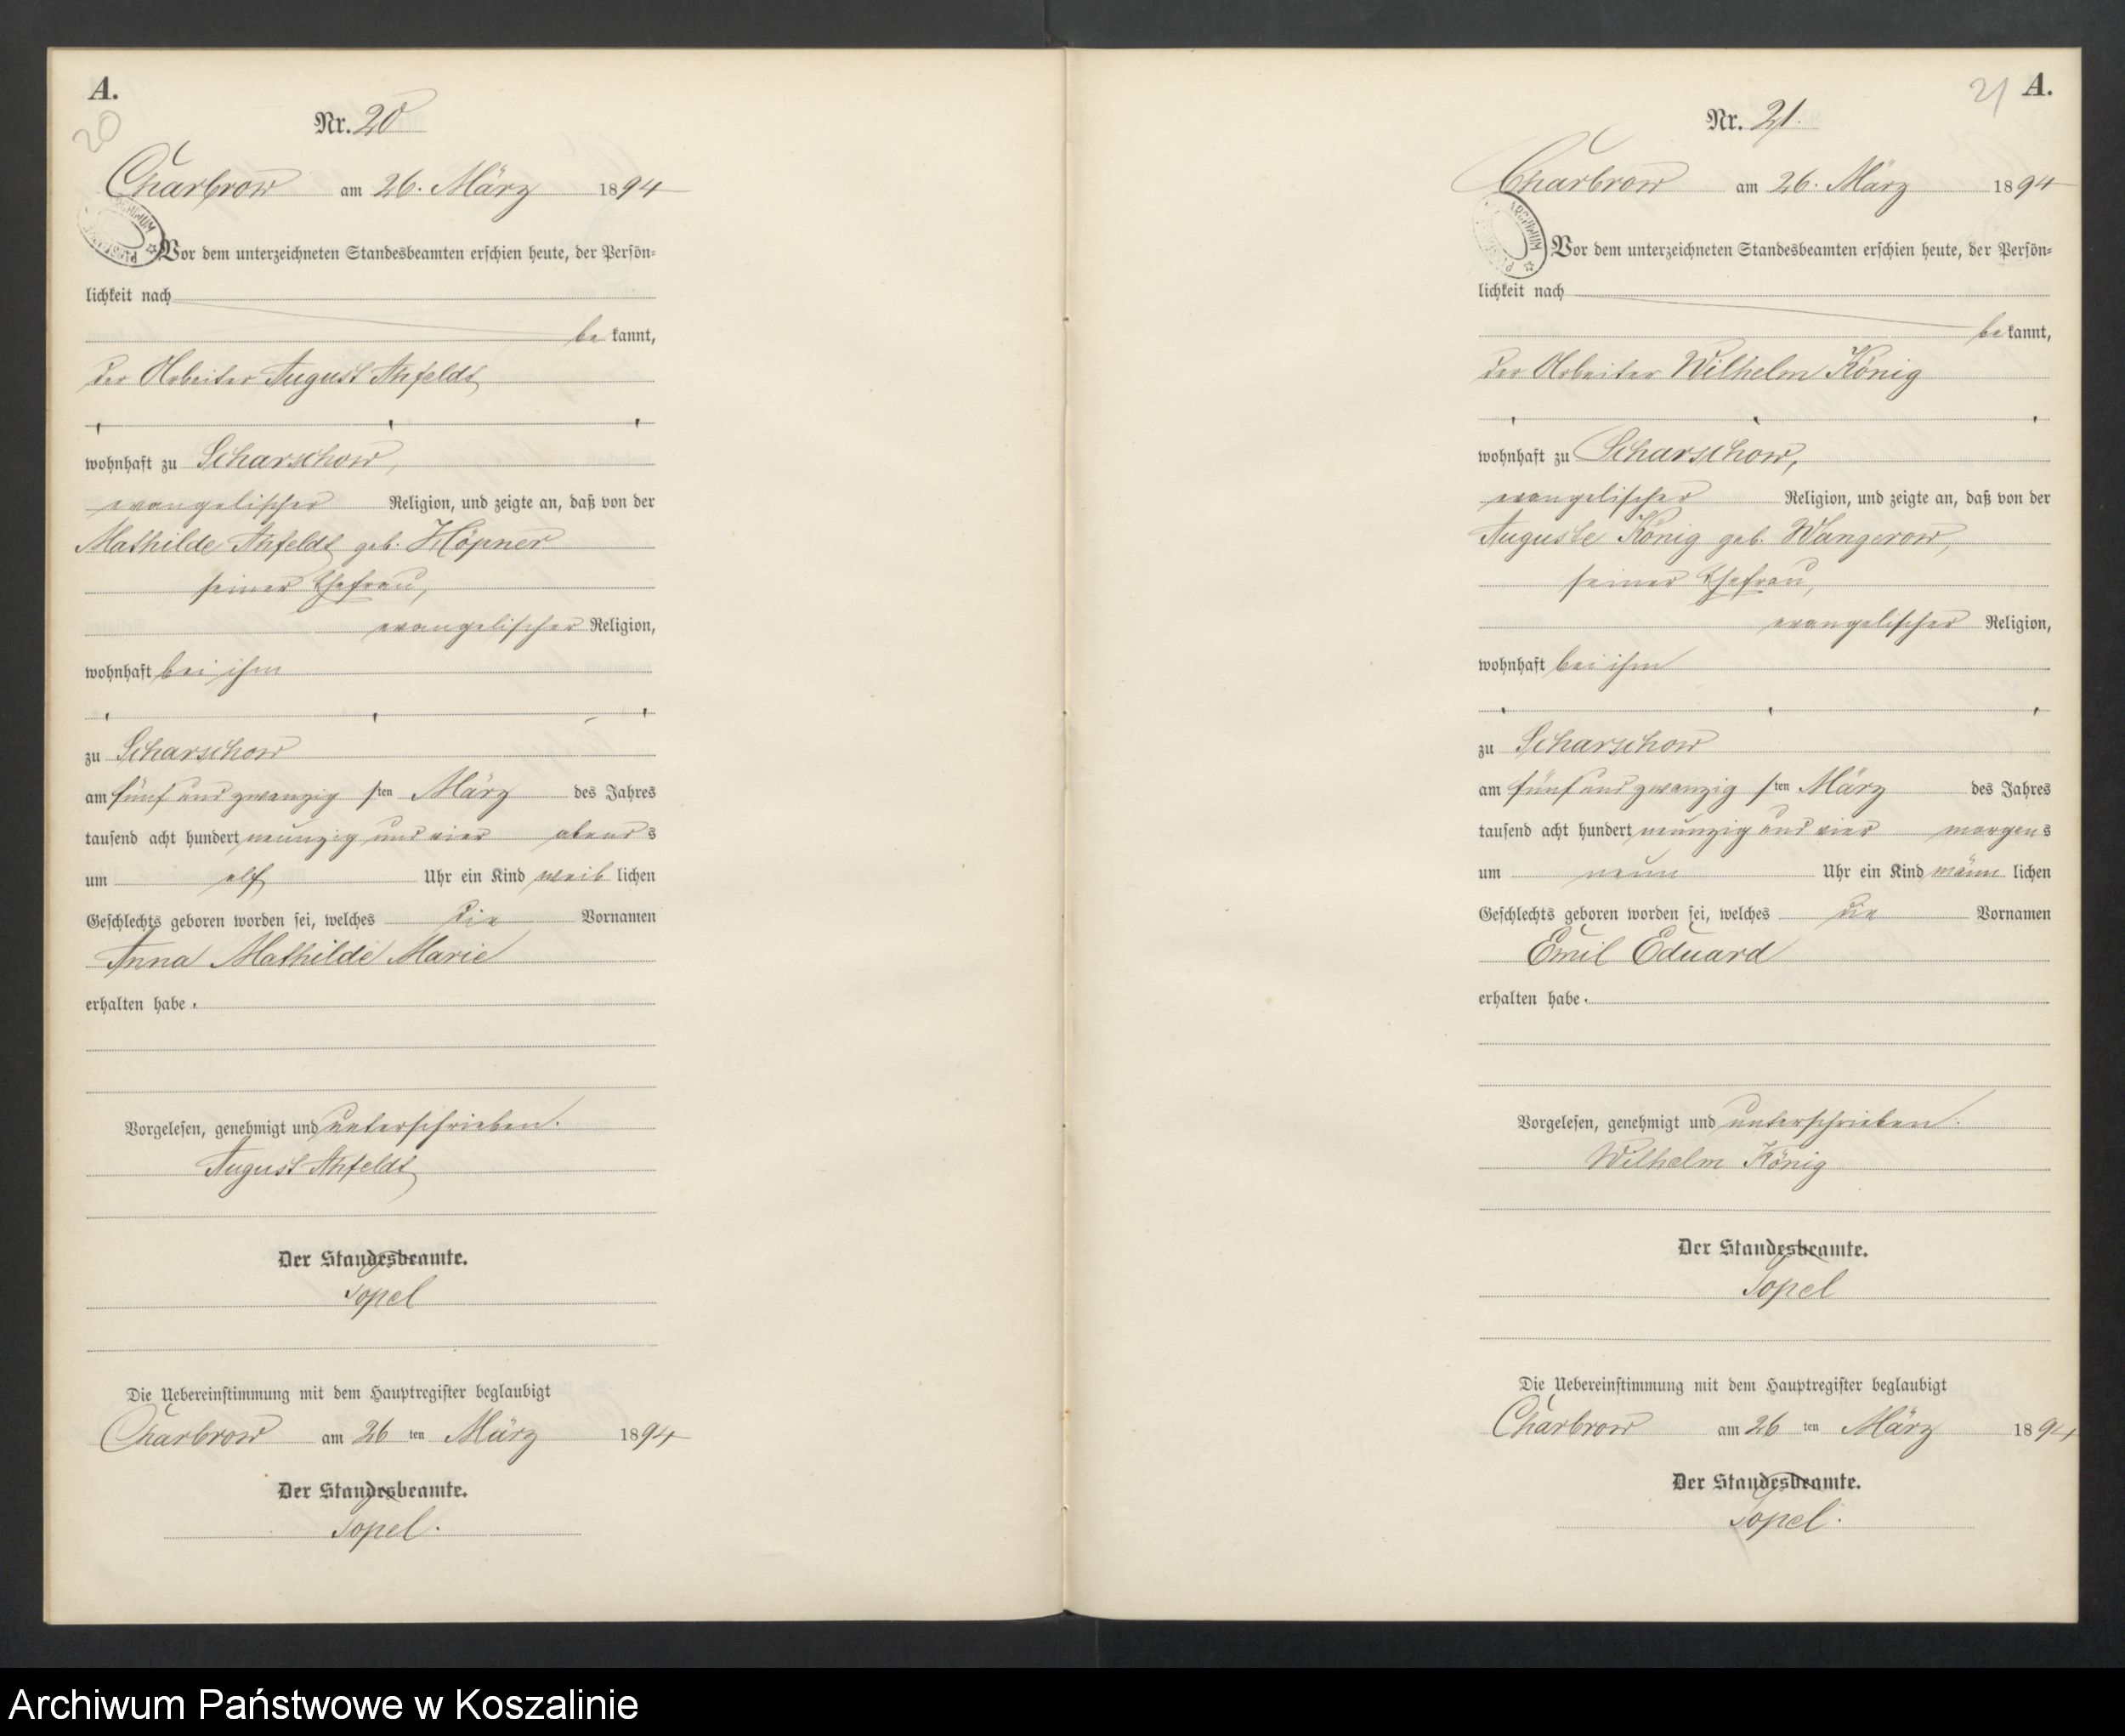 A.
20
Nr. 20
Charbrow am 26. März 1894
Vor dem unterzeichneten Standesbeamten erschien heute, der Persön-
lichkeit nach
be kannt,
der Arbeiter August Ahfeldt
wohnhaft zu Scharschow,
evangelischer Religion, und zeigte an, daß von der
Mathilde Ahfeldt geb. Höpner
seiner Ehefrau,
evangelischer Religion,
wohnhaft bei ihm
zu Scharschow
am fünf und zwanzig sten März des Jahres
tausend acht hundert neunzig und vier abends
um elf Uhr ein Kind weib lichen
Geschlechts geboren worden sei, welches die Vornamen
Anna Mathilde Marie
erhalten habe.
Vorgelesen, genehmigt und unterschrieben.
August Ahfeldt
Der Standesbeamte.
Topel
Die Uebereinstimmung mit dem Hauptregister beglaubigt
Charbrow am 26 ten März 1894
Der Standesbeamte.
Topel.
21 A.
Nr. 21.
Charbrow am 26. März 1894
ARCHIWUM
Vor dem unterzeichneten Standesbeamten erschien heute, der Persön-
lichkeit nach
be kannt,
der Arbeiter Wilhelm König
wohnhaft zu Scharschow,
evangelischer Religion, und zeigte an, daß von der
Auguste König geb. Wangerow,
seiner Ehefrau,
evangelischer Religion,
wohnhaft bei ihm
zu Scharschow
am fünf und zwanzig sten März des Jahres
tausend acht hundert neunzig und vier morgens
um neun Uhr ein Kind männ lichen
Geschlechts geboren worden sei, welches die Vornamen
Emil Eduard
erhalten habe.
Vorgelesen, genehmigt und unterschrieben.
Wilhelm König
Der Standesbeamte.
Topel
Die Uebereinstimmung mit dem Hauptregister beglaubigt
Charbrow am 26 ten März 1894
Der Standesbeamte.
Topel.
Archiwum Państwowe w Koszalinie